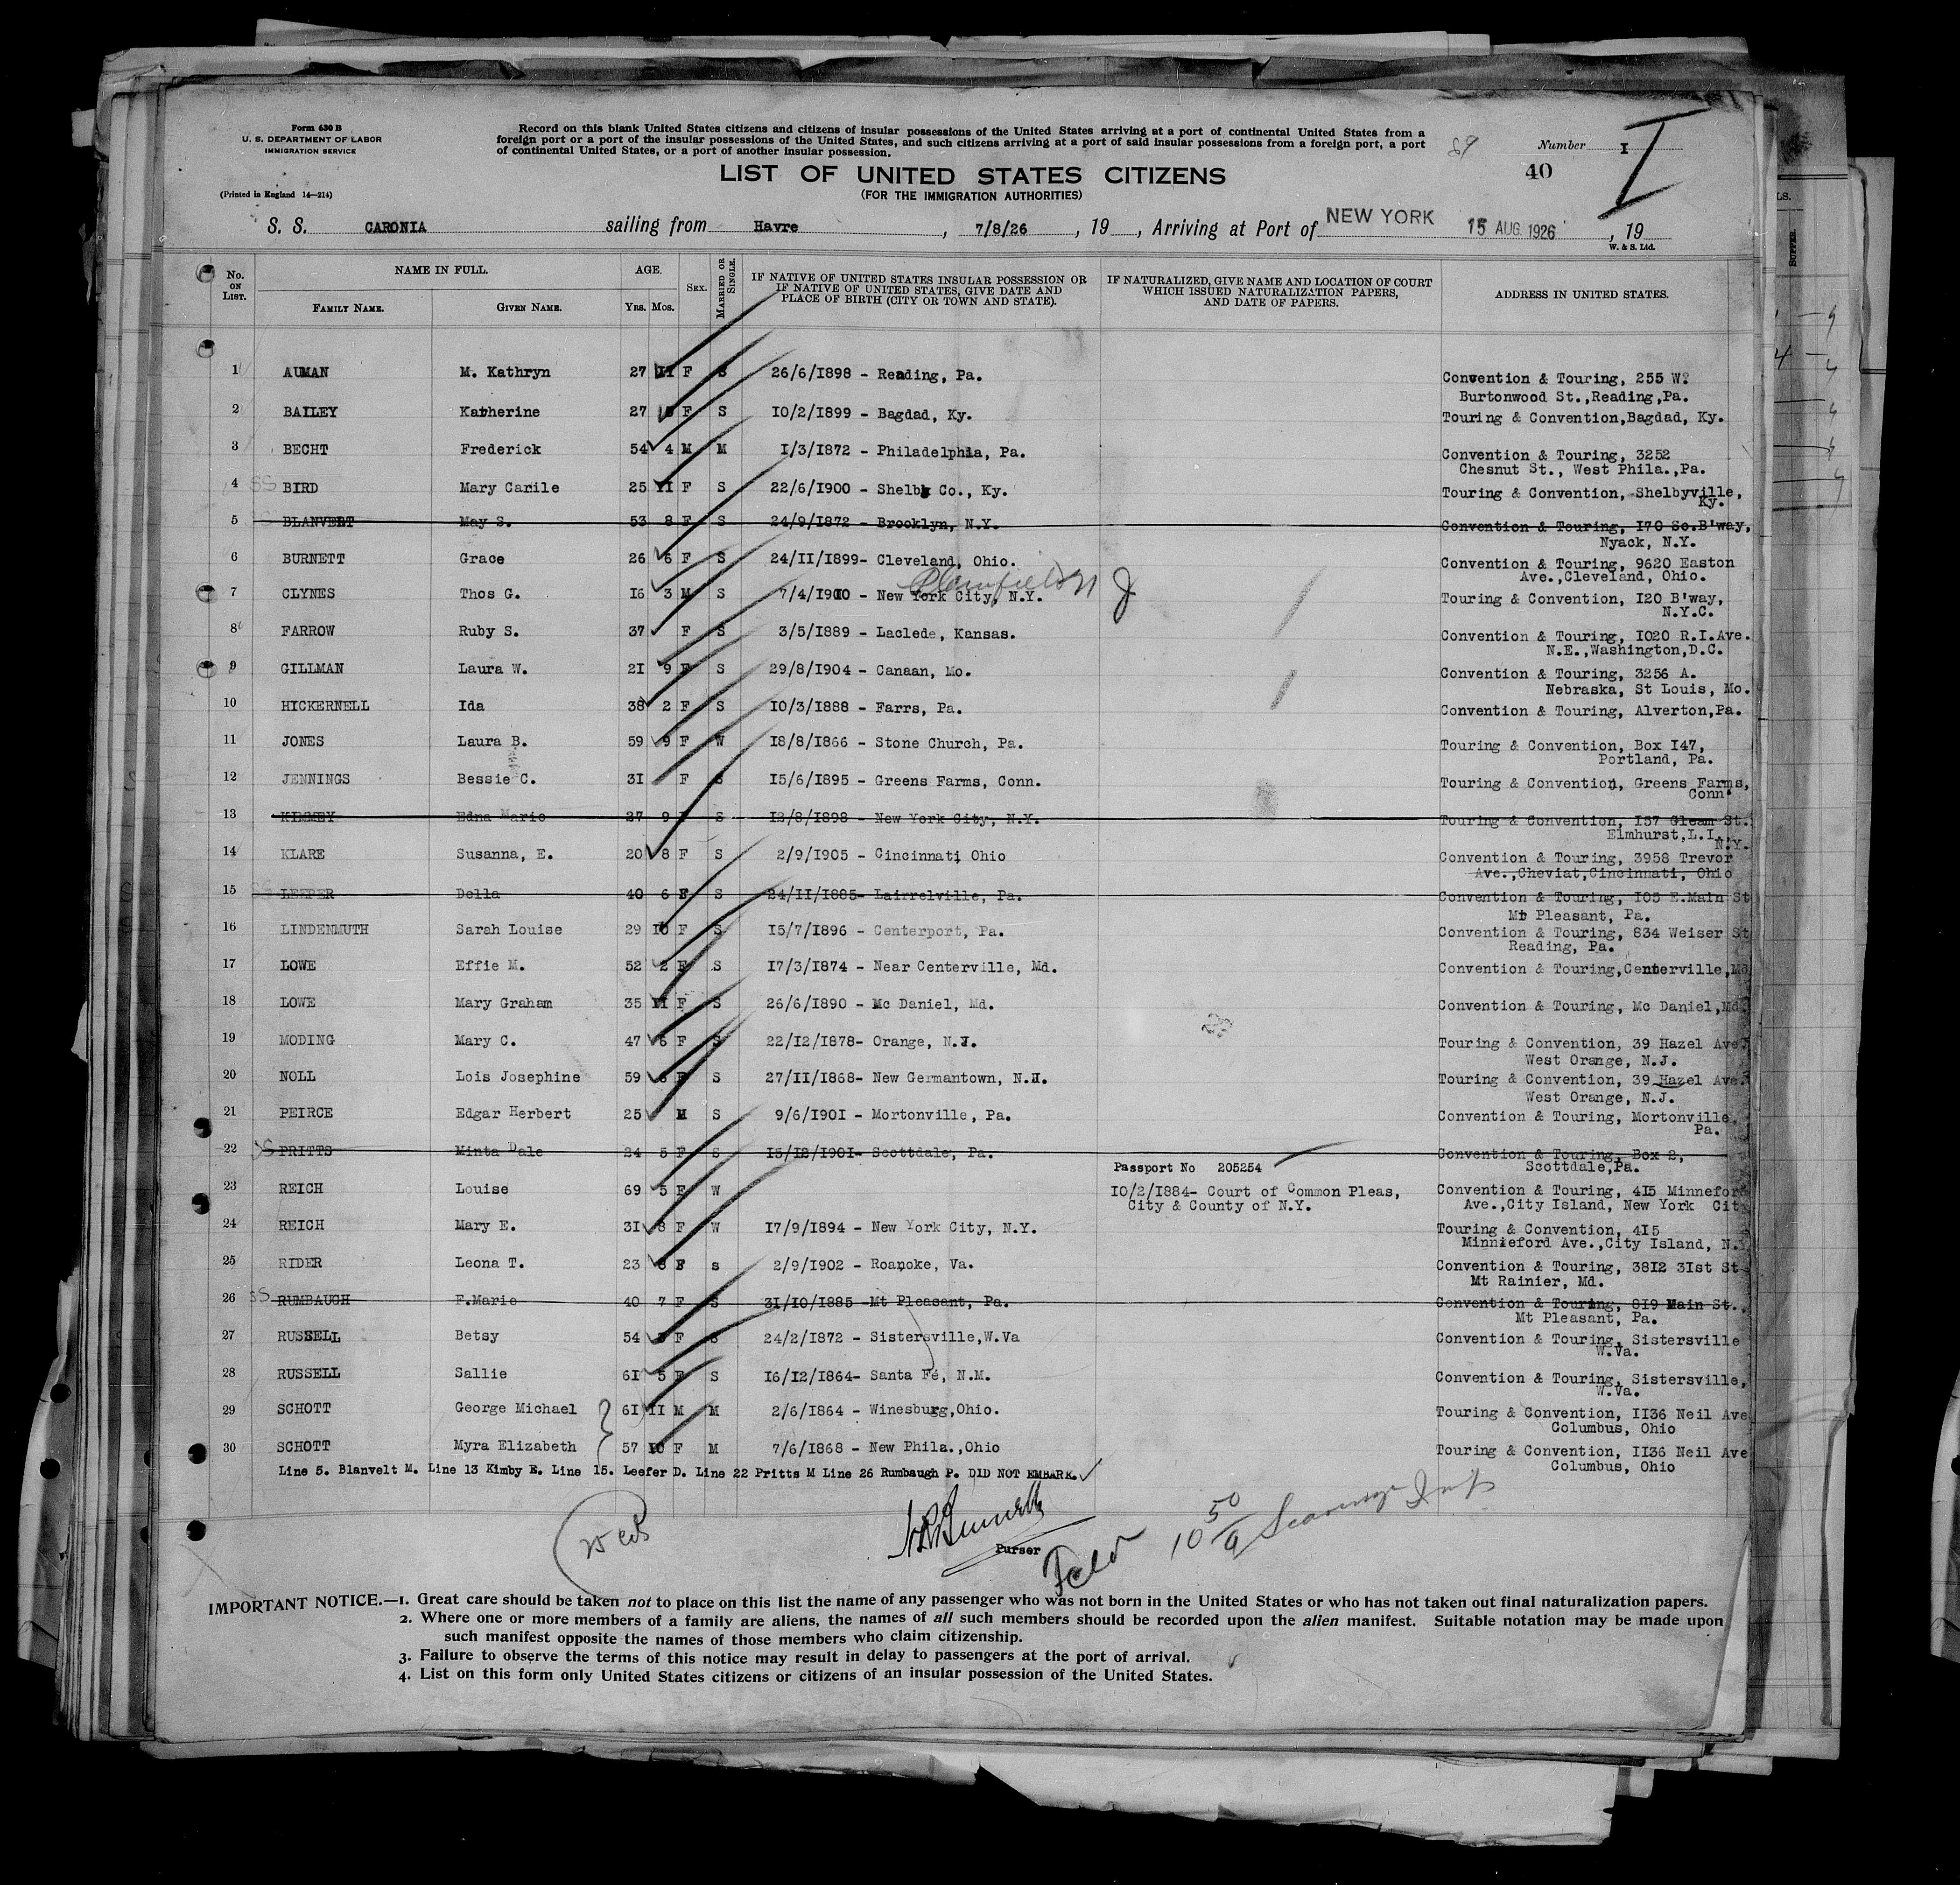 Form 630 B
U. S. DEPARTMENT OF LABOR
IMMIGRATION SERVICE
(Printed in England 14—214)
Record on this blank United States citizens and citizens of insular possessions of the United States arriving at a port of continental United States from a
foreign port or a port of the insular possessions of the United States, and such citizens arriving at a port of said insular possessions from a foreign port, a port
of continental United States, or a port of another insular possession.
89
Number I
I
40
LIST OF UNITED STATES CITIZENS
(FOR THE IMMIGRATION AUTHORITIES)
S. S. CARONIA sailing from Havre, 7/8/26, 19, Arriving at Port of NEW YORK 15 AUG. 1926, 19
W. & S. Ltd.
No. ON LIST. NAME IN FULL. FAMILY NAME. GIVEN NAME. AGE. YRS. MOS. SEX. MARRIED OR SINGLE.
IF NATIVE OF UNITED STATES INSULAR POSSESSION OR
IF NATIVE OF UNITED STATES, GIVE DATE AND
PLACE OF BIRTH (CITY OR TOWN AND STATE).
IF NATURALIZED, GIVE NAME AND LOCATION OF COURT
WHICH ISSUED NATURALIZATION PAPERS,
AND DATE OF PAPERS.
ADDRESS IN UNITED STATES.
1 AUMAN M. Kathryn 27 11 F S 26/6/1898 - Reading, Pa. Convention & Touring, 255 W.
Burtonwood St.,Reading,Pa.
2 BAILEY Katherine 27 F S 10/2/1899 - Bagdad, Ky. Touring & Convention,Bagdad, Ky.
3 BECHT Frederick 54 4 M M 1/3/1872 - Philadelphia, Pa. Convention & Touring, 3252
Chesnut St., West Phila.,Pa.
4 SS BIRD Mary Carile 25 11 F S 22/6/1900 - Shelby Co., Ky. Touring & Convention, Shelbyville,
Ky.
5 BLANVELT May S. 53 8 F S 24/9/1872 - Brooklyn, N.Y. Convention & Touring, 170 So.B'way,
Nyack, N.Y.
6 BURNETT Grace 26 6 F S 24/11/1899- Cleveland, Ohio. Convention & Touring, 9620 Easton
Ave.,Cleveland, Ohio.
Plainfield NJ
7 CLYNES Thos G. 16 3 M S 7/4/1910 - New York City, N.Y. Touring & Convention, 120 B'way,
N.Y.C.
8 FARROW Ruby S. 37 F S 3/5/1889 - Laclede, Kansas. Convention & Touring, 1020 R.I.Ave.
N.E.,Washington,D.C.
9 GILLMAN Laura W. 21 9 F S 29/8/1904 - Canaan, Mo. Convention & Touring, 3256 A.
Nebraska, St Louis, Mo.
10 HICKERNELL Ida 38 2 F S 10/3/1888 - Farrs, Pa. Convention & Touring, Alverton,Pa.
11 JONES Laura B. 59 9 F W 18/8/1866 - Stone Church, Pa. Touring & Convention, Box 147,
Portland, Pa.
12 JENNINGS Bessie C. 31 F S 15/6/1895 - Greens Farms, Conn. Touring & Convention, Greens Farms,
Conn.
13 KIMMEY Edna Marie 27 9 F S 12/8/1898 - New York City, N.Y. Touring & Convention, 157 Gleam St.
Elmhurst,L.I.
N.Y.
14 KLARE Susanna, E. 20 8 F S 2/9/1905 - Cincinnati Ohio Convention & Touring, 3958 Trevor
Ave.,Cheviat,Cincinnati, Ohio
15 SS LEEPER Della 40 6 F S 24/11/1885- Lairrelville, Pa. Convention & Touring, 105 E.Main St
Mt Pleasant, Pa.
16 LINDENMUTH Sarah Louise 29 10 F S 15/7/1896 - Centerport, Pa. Convention & Touring, 834 Weiser St
Reading, Pa.
17 LOWE Effie M. 52 2 F S 17/3/1874 - Near Centerville, Md. Convention & Touring,Centerville,Md
18 LOWE Mary Graham 35 11 F S 26/6/1890 - Mc Daniel, Md. Convention & Touring, Mc Daniel,Md.
19 MODING Mary C. 47 6 F S 22/12/1878- Orange, N.J. Touring & Convention, 39 Hazel Ave.
West Orange, N.J.
20 NOLL Lois Josephine 59 6 F S 27/11/1868- New Germantown, N.J. Touring & Convention, 39 Hazel Ave.
West Orange, N.J.
21 PEIRCE Edgar Herbert 25 M S 9/6/1901 - Mortonville, Pa. Convention & Touring, Mortonville,
Pa.
22 SS PRITTS Minta Dale 24 5 F S 15/12/1901- Scottdale, Pa. Convention & Touring, Box 2,
Scottdale,Pa.
Passport No 205254
23 REICH Louise 69 5 F W 10/2/1884- Court of Common Pleas, Convention & Touring, 415 Minnefor
City & County of N.Y. Ave.,City Island, New York City
24 REICH Mary E. 31 8 F W 17/9/1894 - New York City, N.Y. Touring & Convention, 415
Minnieford Ave.,City Island, N.Y
25 RIDER Leona T. 23 8 F s 2/9/1902 - Roanoke, Va. Convention & Touring, 3812 31st St
Mt Rainier, Md.
26 SS RUMBAUGH F.Marie 40 7 F S 31/10/1885 -Mt Pleasant, Pa. Convention & Touring, 819 Main St.,
Mt Pleasant, Pa.
27 RUSSELL Betsy 54 F S 24/2/1872 - Sistersville,W.Va Convention & Touring, Sistersville
W.Va.
28 RUSSELL Sallie 61 5 F S 16/12/1864- Santa Fé, N.M. Convention & Touring, Sistersville,
W.Va.
29 SCHOTT George Michael 61 11 M M 2/6/1864 - Winesburg,Ohio. Touring & Convention, 1136 Neil Ave
Columbus, Ohio
30 SCHOTT Myra Elizabeth 57 10 F M 7/6/1868 - New Phila.,Ohio Touring & Convention, 1136 Neil Ave
Columbus, Ohio
Line 5. Blanvelt M. Line 13 Kimby E. Line 15. Leefer D. Line 22 Pritts M Line 26 Rumbaugh P. DID NOT EMBARK.
Purser
10 50
IMPORTANT NOTICE.—1. Great care should be taken not to place on this list the name of any passenger who was not born in the United States or who has not taken out final naturalization papers.
2. Where one or more members of a family are aliens, the names of all such members should be recorded upon the alien manifest. Suitable notation may be made upon
such manifest opposite the names of those members who claim citizenship.
3. Failure to observe the terms of this notice may result in delay to passengers at the port of arrival.
4. List on this form only United States citizens or citizens of an insular possession of the United States.